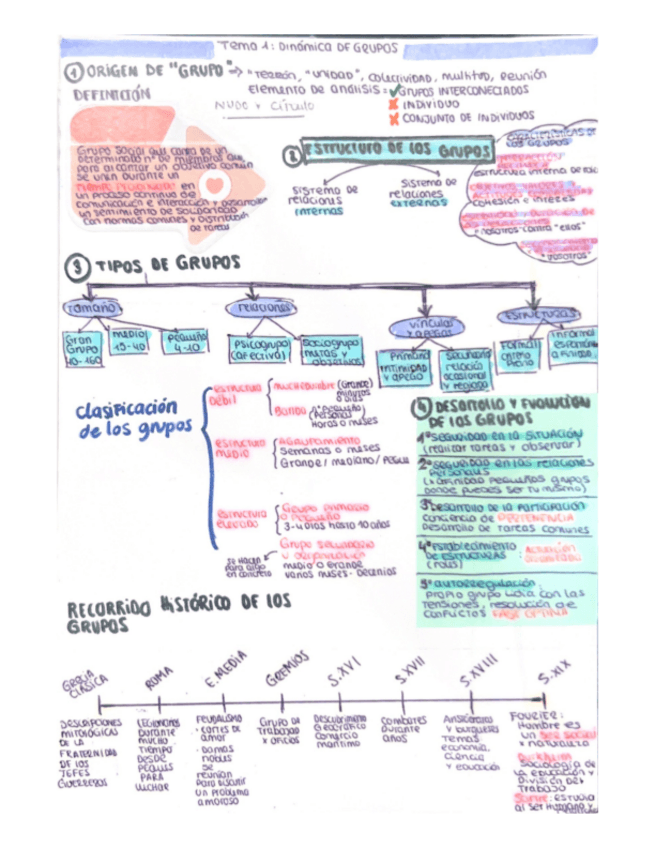 Tema 1: Dinámica DE GRUPOS
1 ORIGEN DE "GRUPO" → "reunión, "unidad", colectividad, multitud, reunión
elemento de análisis: ✓ GRUPOS INTERCONECTADOS
DEFINICIÓN
NUDO Y CÍRCULO
✗ INDIVIDUO
✗ CONJUNTO DE INDIVIDUOS
Grupo social que consta de un
determinado nº de miembros que
para alcanzar un objetivo común
se unen durante un
en
un proceso continuo de
comunicación e interacción y desarrollan
un sentimiento de solidaridad
con normas comunes y distribución
de tareas
2 ESTRUCTURA DE LOS GRUPOS
Sistema de
relaciones
internas
Sistema de
relaciones
externas
CARACTERÍSTICAS DE
LOS GRUPOS
estructura interna de
cohesión e interés
"nosotros" contra "ellos"
"nosotros"
3 TIPOS DE GRUPOS
Tamaño
relaciones
vínculos
y apegos
ESTRUCTURAS
Gran
Grupo
medio
15-40
pequeño
4-10
Psicogrupo
(afectiva)
Sociogrupo
metas y
objetivos
Primario
intimidad
y apego
Secundario
relación
ocasional
Formal
Informal
Clasificación
de los grupos
estructura
débil
muchedumbre (Grande)
minutos
o días
Banda
Horas o meses
estructura
media
AGRUPAMIENTO
Semanas o meses
Grande / mediano / pequeño
estructura
elevada
Grupo primario
o pequeño
3-4 días hasta 10 años
Grupo secundario
u organización
medio o grande
varios meses - decenios
se hacen
para algo
en concreto
4 DESARROLLO Y EVOLUCIÓN
DE LOS GRUPOS
1º SEGURIDAD EN LA SITUACIÓN
(realizar tareas y observar)
2º seguridad en las relaciones
personales
(x afinidad pequeños grupos
donde puedes ser tu mismo)
3º Desarrollo de la participación
conciencia de PERTENENCIA
Desarrollo de tareas comunes
4º establecimiento
de estructuras
(roles)
5º autorregulación:
propio grupo lidia con las
tensiones, resolución de
conflictos FASE OPTIMA
RECORRIDO HISTÓRICO DE LOS
GRUPOS
GRECIA
CLÁSICA
ROMA
E. MEDIA
GREMIOS
S.XVI
S.XVII
S.XVIII
S.XIX
DESCRIPCIONES
MITOLÓGICAS
DE LA
FRATERNIDAD
DE LOS
JEFES
GUERREROS
LEGIONES
durante
mucho
tiempo
desde
PARA
LUCHAR
FEUDALISMO
· cortes de
amor
· damas
nobles
se
reunían
para discutir
un problema
amoroso
Grupo de
trabajos
y oficios
Descubrimiento
Geográfico
Comercio
marítimo
Combates
durante
años
Aristócratas
y burgueses
Temas
economía,
ciencia
y educación
FOURIER:
Hombre es
un ser social
x naturaleza
Durkheim
Sociología de
la educación y
División del
Trabajo
Sartre: estudia
al ser humano y